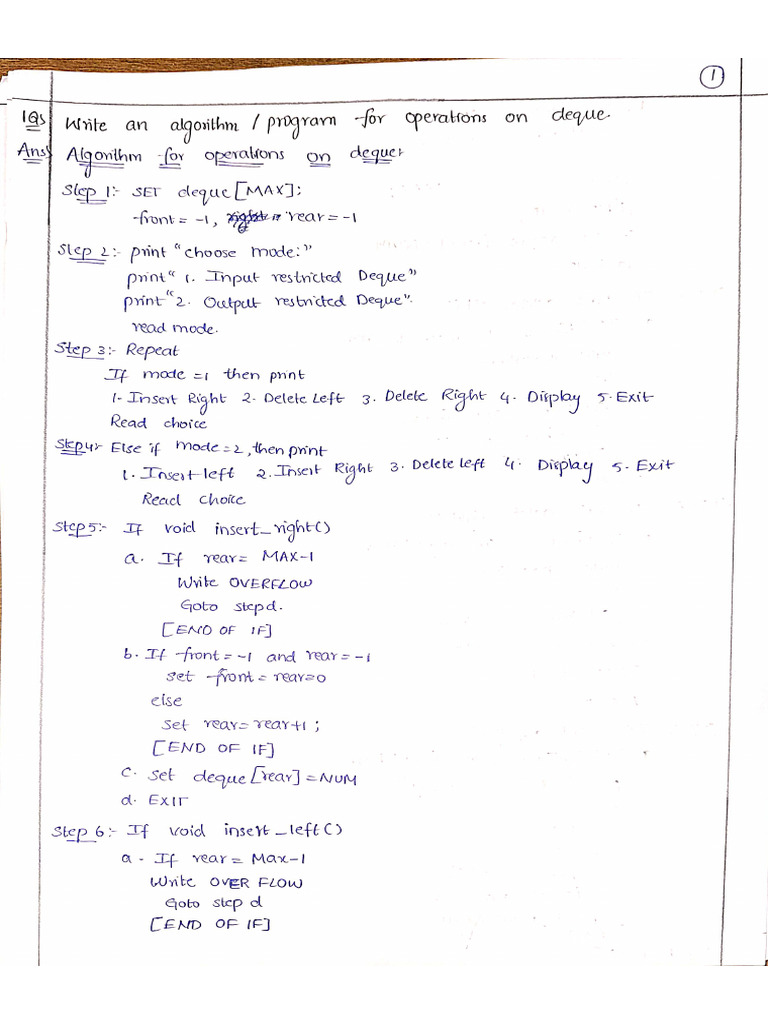 1
1Q) Write an algorithm / program for operations on deque.
Ans) Algorithm for operations on deque:
Step 1:- SET deque[MAX];
front = -1, rear = -1
Step 2:- print "choose mode:"
print "1. Input restricted Deque"
print "2. Output restricted Deque".
read mode.
Step 3:- Repeat
If mode =1 then print
1. Insert Right 2. Delete Left 3. Delete Right 4. Display 5. Exit
Read choice
Step4:- Else if mode=2, then print
1. Insert left 2. Insert Right 3. Delete left 4. Display 5. Exit
Read choice
Step5:- If void insert_right()
a. If rear= MAX-1
Write OVERFLOW
Goto step d.
[END OF IF]
b. If front = -1 and rear = -1
set front = rear=0
else
set rear= rear+1 ;
[END OF IF]
c. set deque[rear] = NUM
d. EXIT
Step 6:- If void insert_left()
a - If rear = Max-1
Write OVER FLOW
Goto step d
[END OF IF]